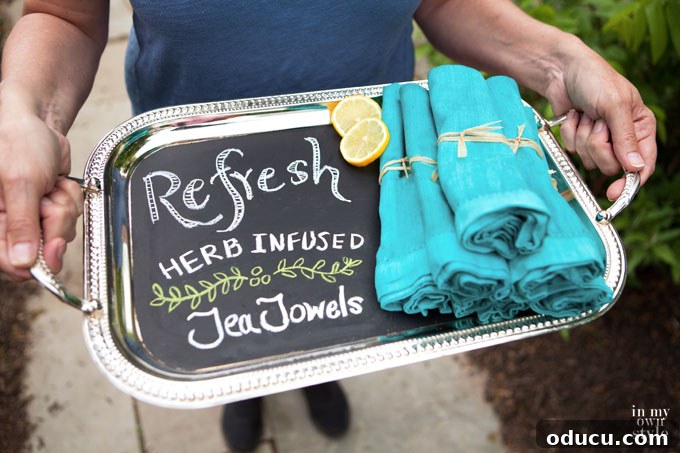 Refresh
HERB INFUSED
Tea Towels
in my
own
style
oducu.com